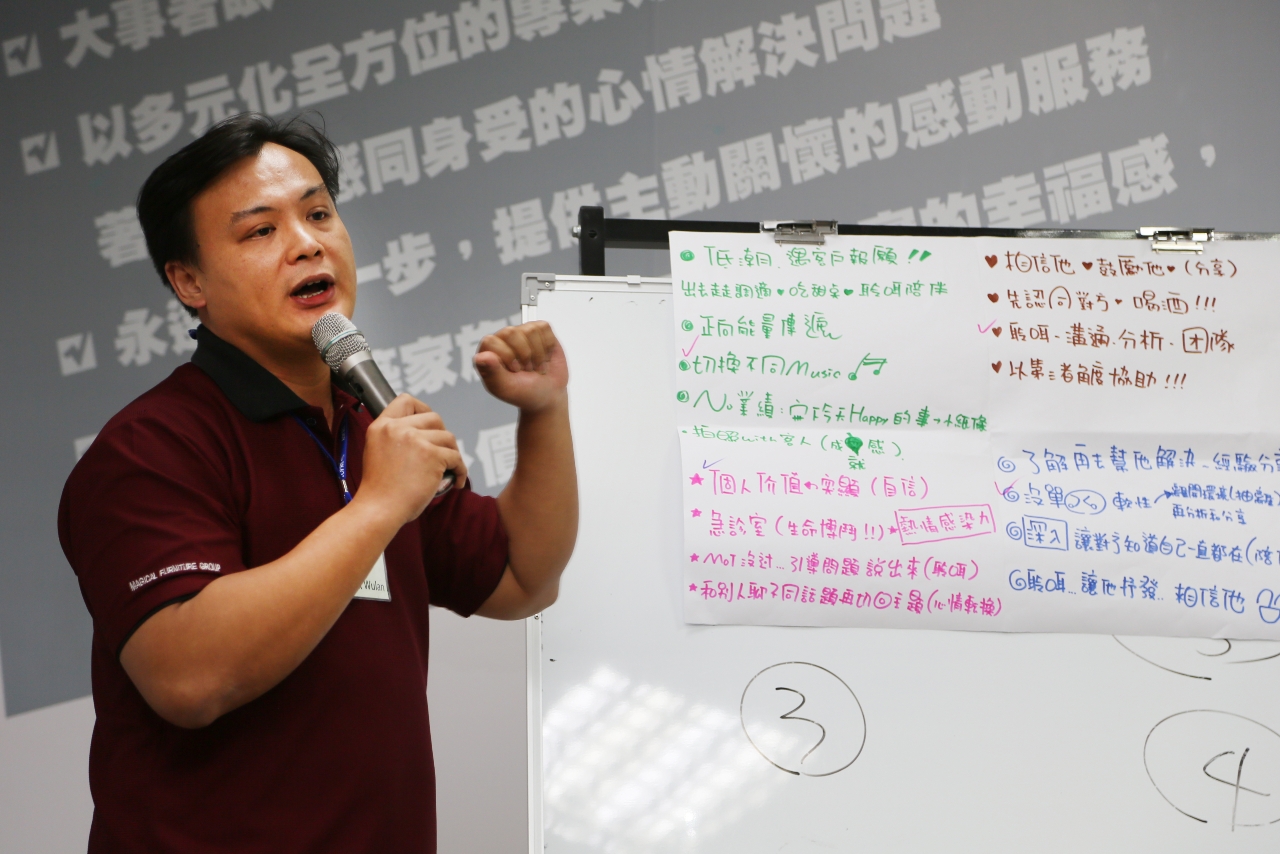 大事著眼
以多元化全方位的專業
感同身受的心情解決問題
著
一步，提供主動關懷的感動服務
永遠
的幸福感，
MAGICAL FURNITURE GROUP
Wulan
低潮.選客戶報願!!
出去走走調適♥吃甜桌♥聆听陪伴
正向能量傳遞
切換不同Music
No業績:
今天Happy的事→小紙條
拍照with客人(成就感)
相信他♥鼓勵他♥(分享)
先認同對方.喝酒!!!
聆听.溝通.分析.团隊
以第三者角度協助!!!
★個人价值→實顯(自信)
★急診室(生命博鬥!!)★熱情感染力
★MOT沒过...引導問題說出來(聆听)
★和別人聊不同話題再切回主題(心情轉換)
了解再去幫他解決...經驗分享
沒單
軟性→離開環境(抽離)
再分析和分享
深入 讓對方知道自己一直都在(陪
聆听...讓他抒發...相信他
3
4